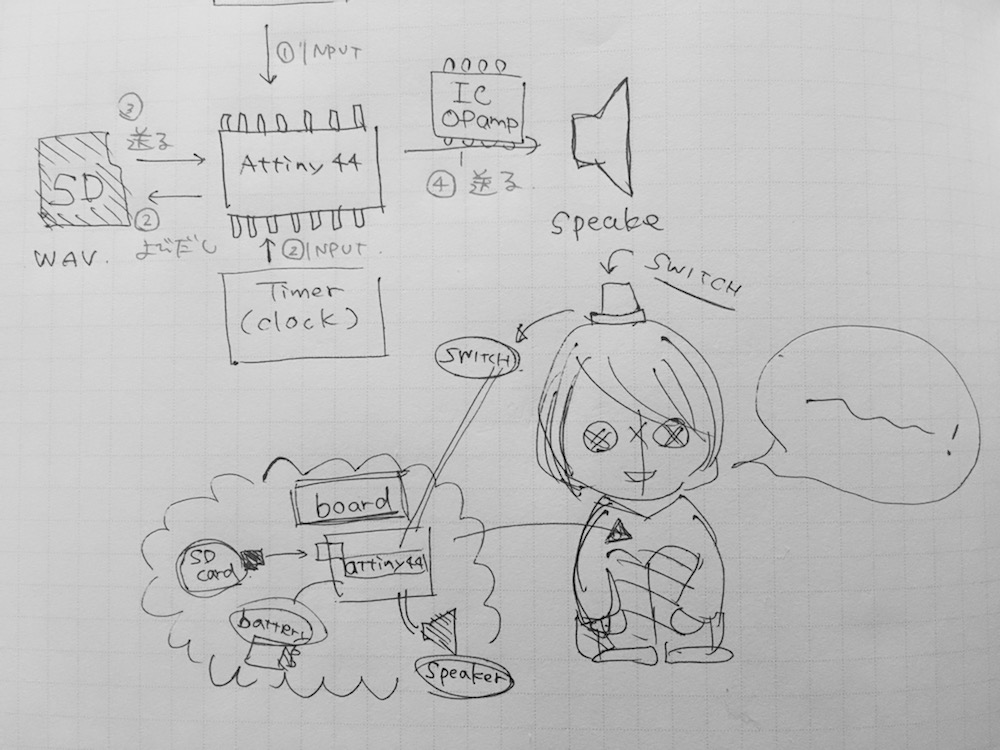 ① INPUT
IC
OPamp
③
送る
Attiny 44
SD
④ 送る.
②
よびだし
WAV.
② INPUT.
Speake
Timer
(clock)
SWITCH
SWITCH
!
board
SD
card
attiny44
battery
Speaker